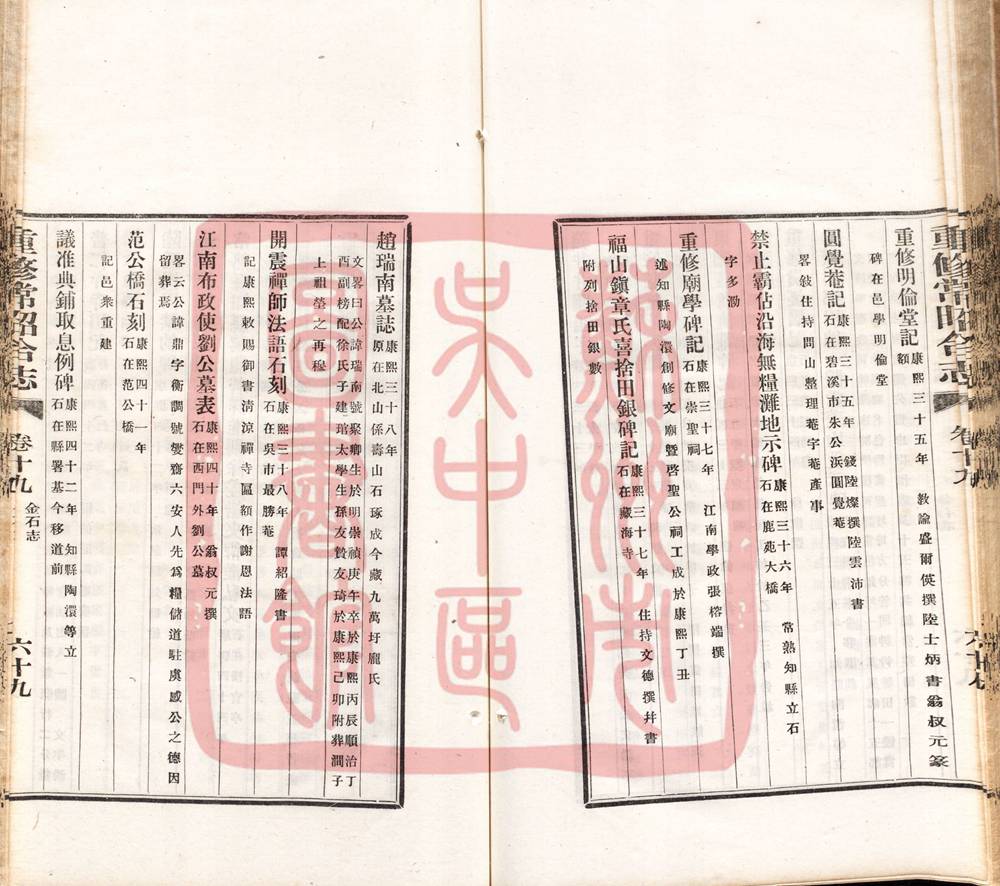 重修明倫堂記 康熙三十五年 教諭盛爾英撰陸士炳書翁叔元篆
額
碑在邑學明倫堂
圓覺菴記 康熙三十五年 錢陸燦撰陸雲沛書
石在碧溪市朱公浜圓覺菴
畧敍住持問山整理菴宇菴產事
禁止霸佔沿海無糧灘地示碑 康熙三十六年 常熟知縣立石
石在鹿苑大橋
字多泐
重修廟學碑記 康熙三十七年 江南學政張榕端撰
石在崇聖祠
述知縣陶澴創修文廟曁啓聖公祠工成於康熙丁丑
福山鎮章氏喜捨田銀碑記 康熙三十七年 住持文德撰幷書
石在藏海寺
附列捨田銀數
趙瑞南墓誌 康熙三十八年
原在北山係壽山石琢成今藏九萬圩龐氏
文畧曰公諱瑞南號聚卿生於明崇禎庚午卒於康熙丙辰順治丁
酉副榜配徐氏子建琯太學生孫友贊友琦於康熙己卯附葬澗子
上祖塋之再穆
開震禪師法語石刻 康熙三十八年 譚紹隆書
石在吳市最勝菴
記康熙敕賜御書淸凉禪寺匾額作謝恩法語
江南布政使劉公墓表 康熙四十年 翁叔元撰
石在西門外劉公墓
畧云公諱鼎字衡調號燮齋六安人先爲糧儲道駐虞感公之德因
留葬焉
范公橋石刻 康熙四十一年
石在范公橋
記邑衆重建
議准典鋪取息例碑 康熙四十二年 知縣陶澴等立
石在縣署基今移道前
重修常昭合志 卷十九 金石志 六十九